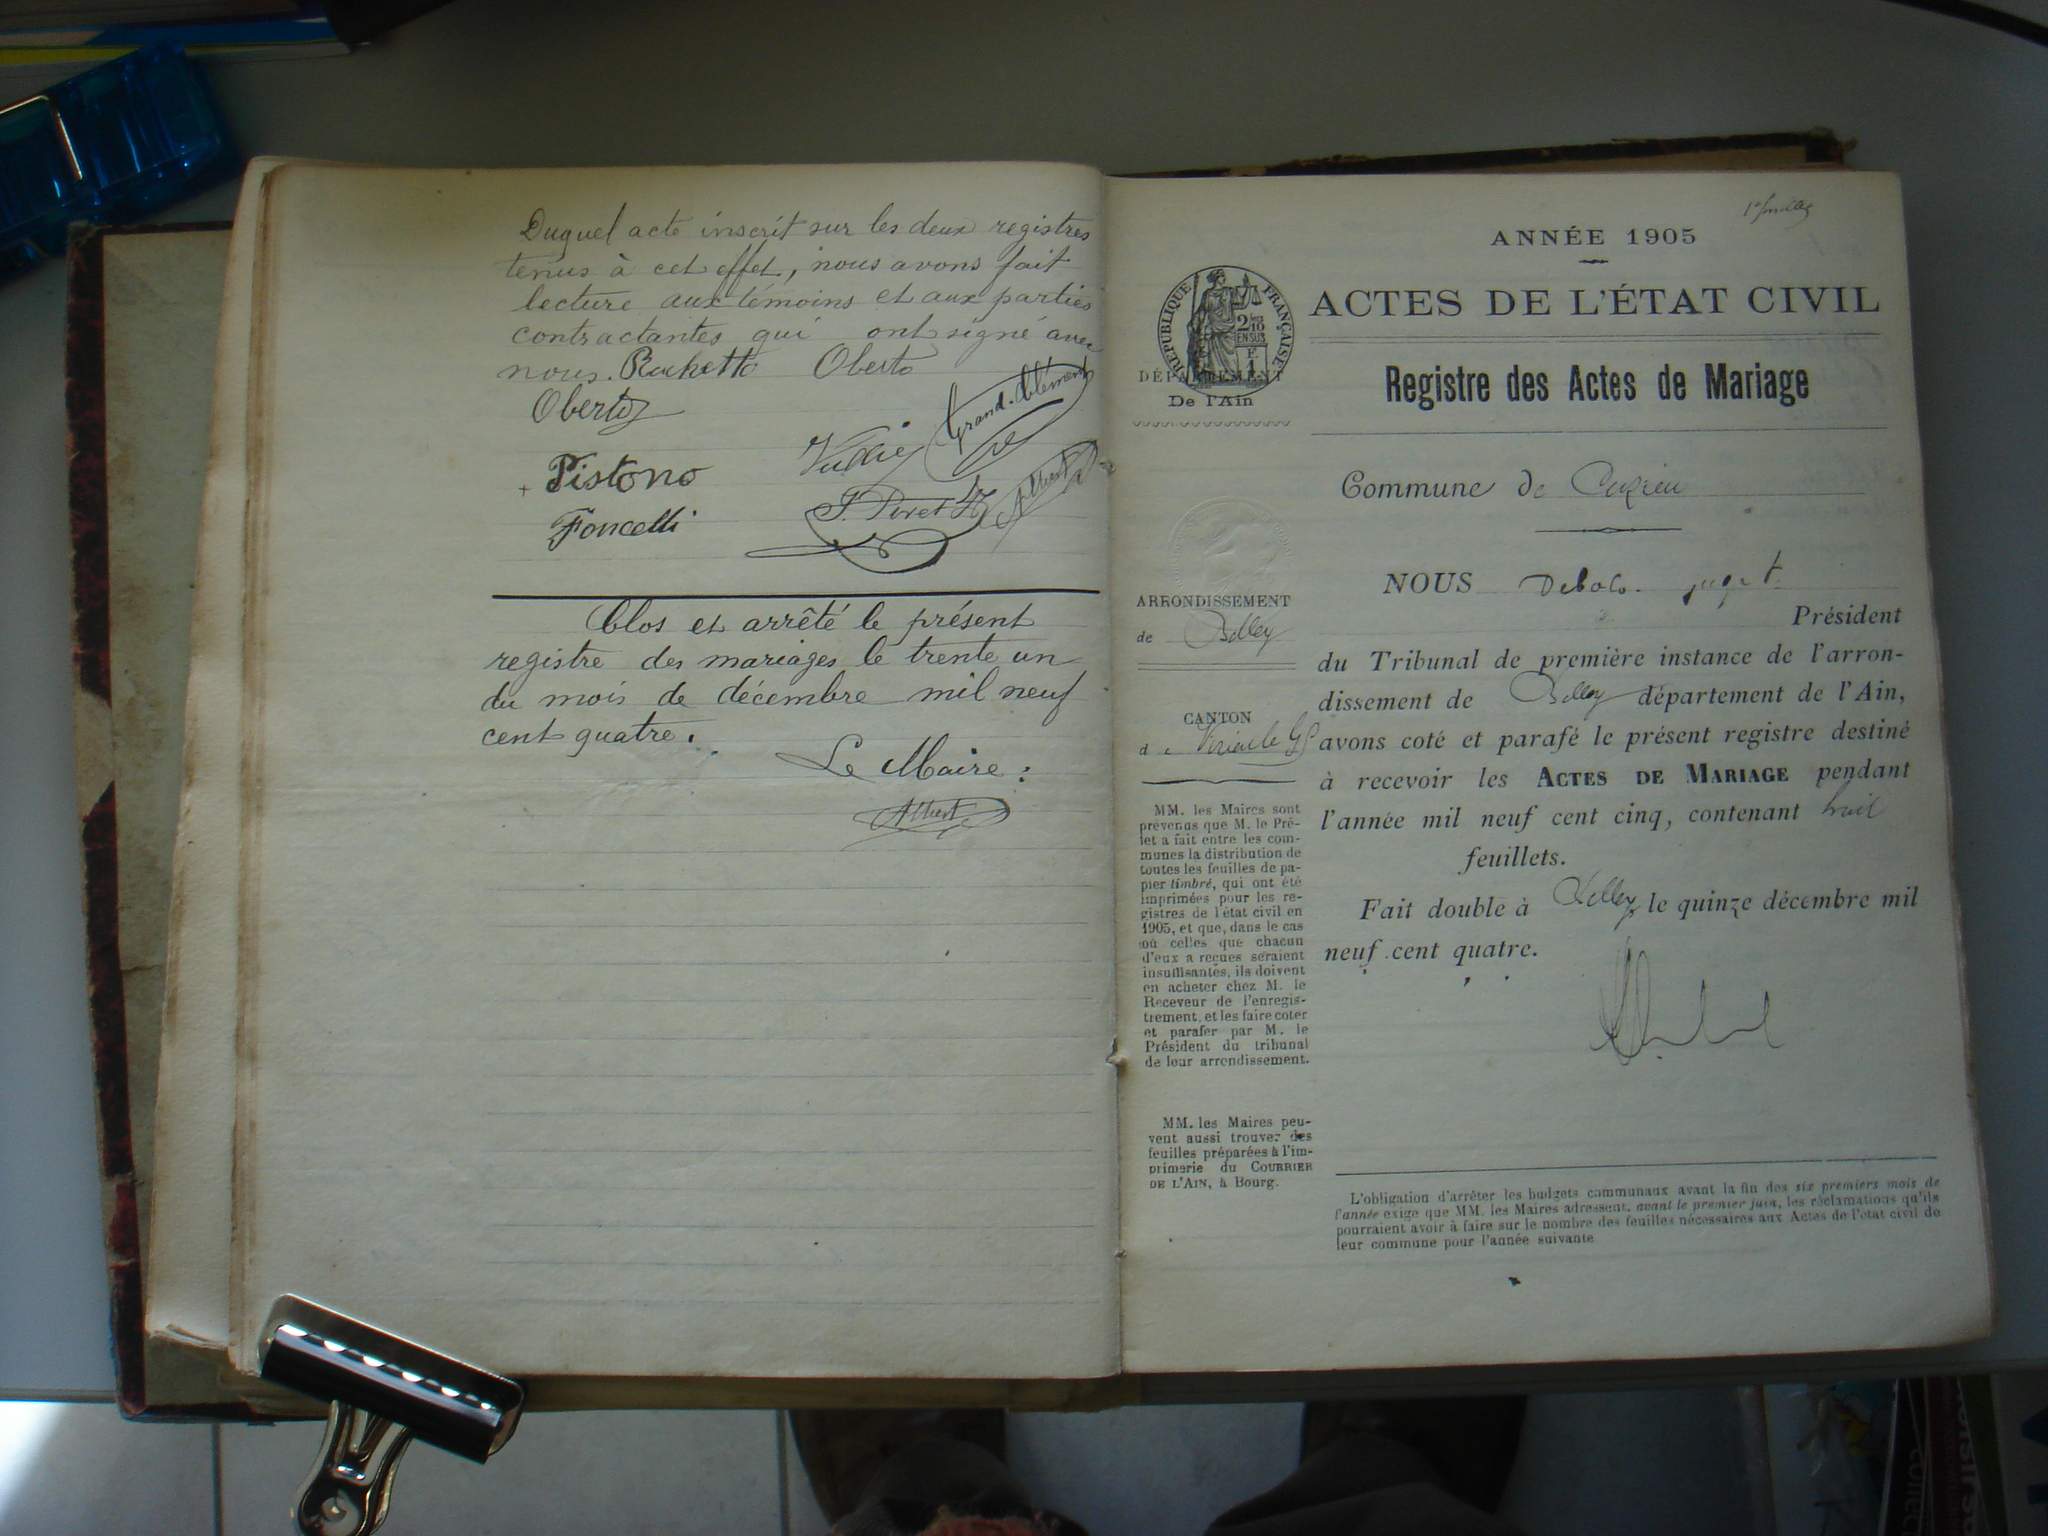 Duquel acte inscrit sur les deux registres
tenus à cet effet, nous avons fait
lecture aux témoins et aux parties
contractantes qui ont signé avec
nous. Oberto
Oberto
Grand-Clément
Pistono
Albert
Foncelli
Clos et arrêté le présent
registre des mariages le trente un
du mois de décembre mil neuf
cent quatre.
Le Maire :
Albert
ANNÉE 1905
ACTES DE L'ÉTAT CIVIL
Registre des Actes de Mariage
RÉPUBLIQUE FRANÇAISE
DÉPARTEMENT
De l'Ain
Commune de Cuzieu
ARRONDISSEMENT
de Belley
CANTON
d e Virieu le Gd
MM. les Maires sont
prévenus que M. le Pré-
fet a fait entre les com-
munes la distribution de
toutes les feuilles de pa-
pier timbré, qui ont été
imprimées pour les re-
gistres de l'état civil en
1905, et que, dans le cas
où celles que chacun
d'eux a reçues seraient
insuffisantes, ils doivent
en acheter chez M. le
Receveur de l'enregis-
trement, et les faire coter
et parafer par M. le
Président du tribunal
de leur arrondissement.
MM. les Maires peu-
vent aussi trouver des
feuilles préparées à l'im-
primerie du COURRIER
DE L'AIN, à Bourg.
NOUS
Président
du Tribunal de première instance de l'arron-
dissement de Belley département de l'Ain,
avons coté et parafé le présent registre destiné
à recevoir les ACTES DE MARIAGE pendant
l'année mil neuf cent cinq, contenant huit
feuillets.
Fait double à Belley, le quinze décembre mil
neuf cent quatre.
L'obligation d'arrêter les budgets communaux avant la fin des six premiers mois de
l'année exige que MM. les Maires adressent, avant le premier juin, les réclamations qu'ils
pourraient avoir à faire sur le nombre des feuilles nécessaires aux Actes de l'état civil de
leur commune pour l'année suivante